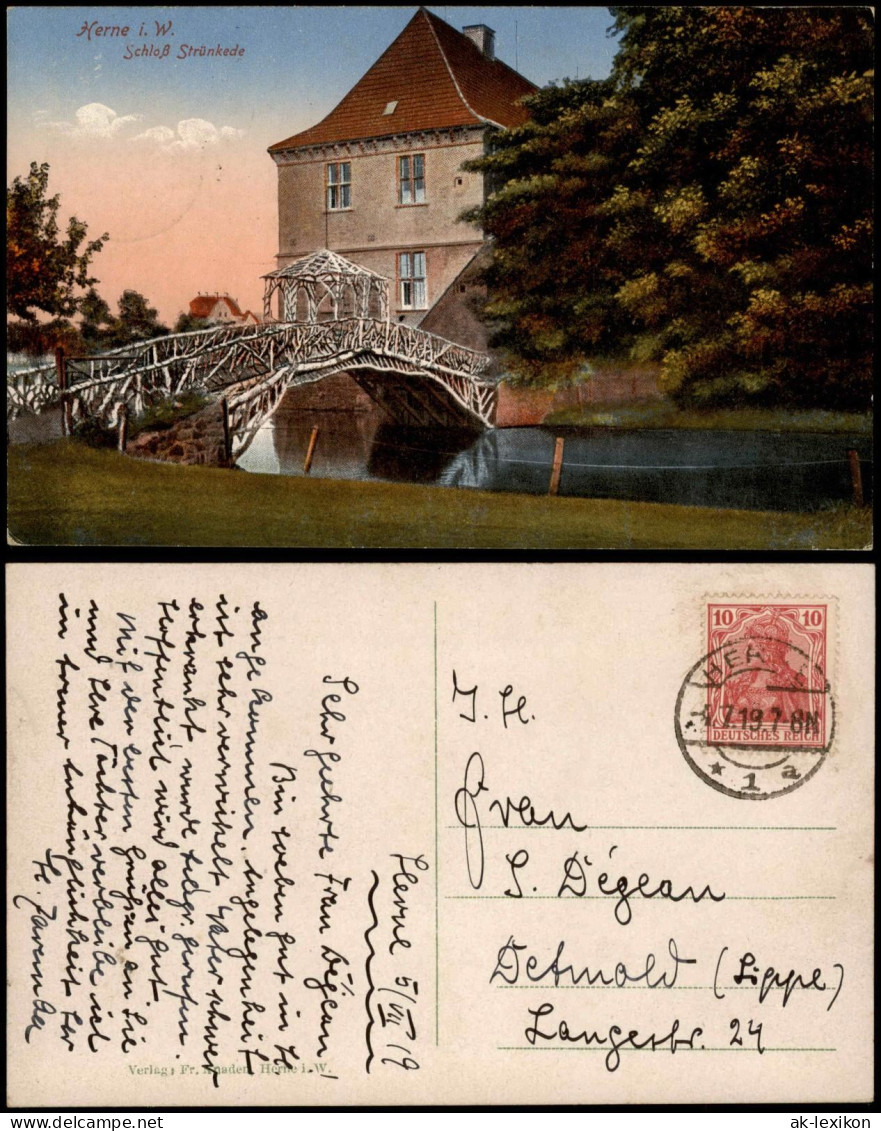 Herne i. W.
Schloß Strünkede
Herne 5/VII 19
Sehr geehrte Frau Dégean!
Bin soeben gut in H.
angekommen. Angelegenheit
ist sehr verwickelt, Vater schwer
erkrankt, wurde telegr. gerufen.
Hoffentlich wird alles gut
Mit den besten Grüßen an Sie
und Ihre Töchter verbleibe ich
in treuer Anhänglichkeit Ihr
H.
Verlag: Fr. Herne i. W.
10 10
DEUTSCHES REICH
HERNE
7.19.7-8N
* 1 a
I. H.
Frau
S. Dégean
Detmold (Lippe)
Langestr. 24
delcampe.net
ak-lexikon